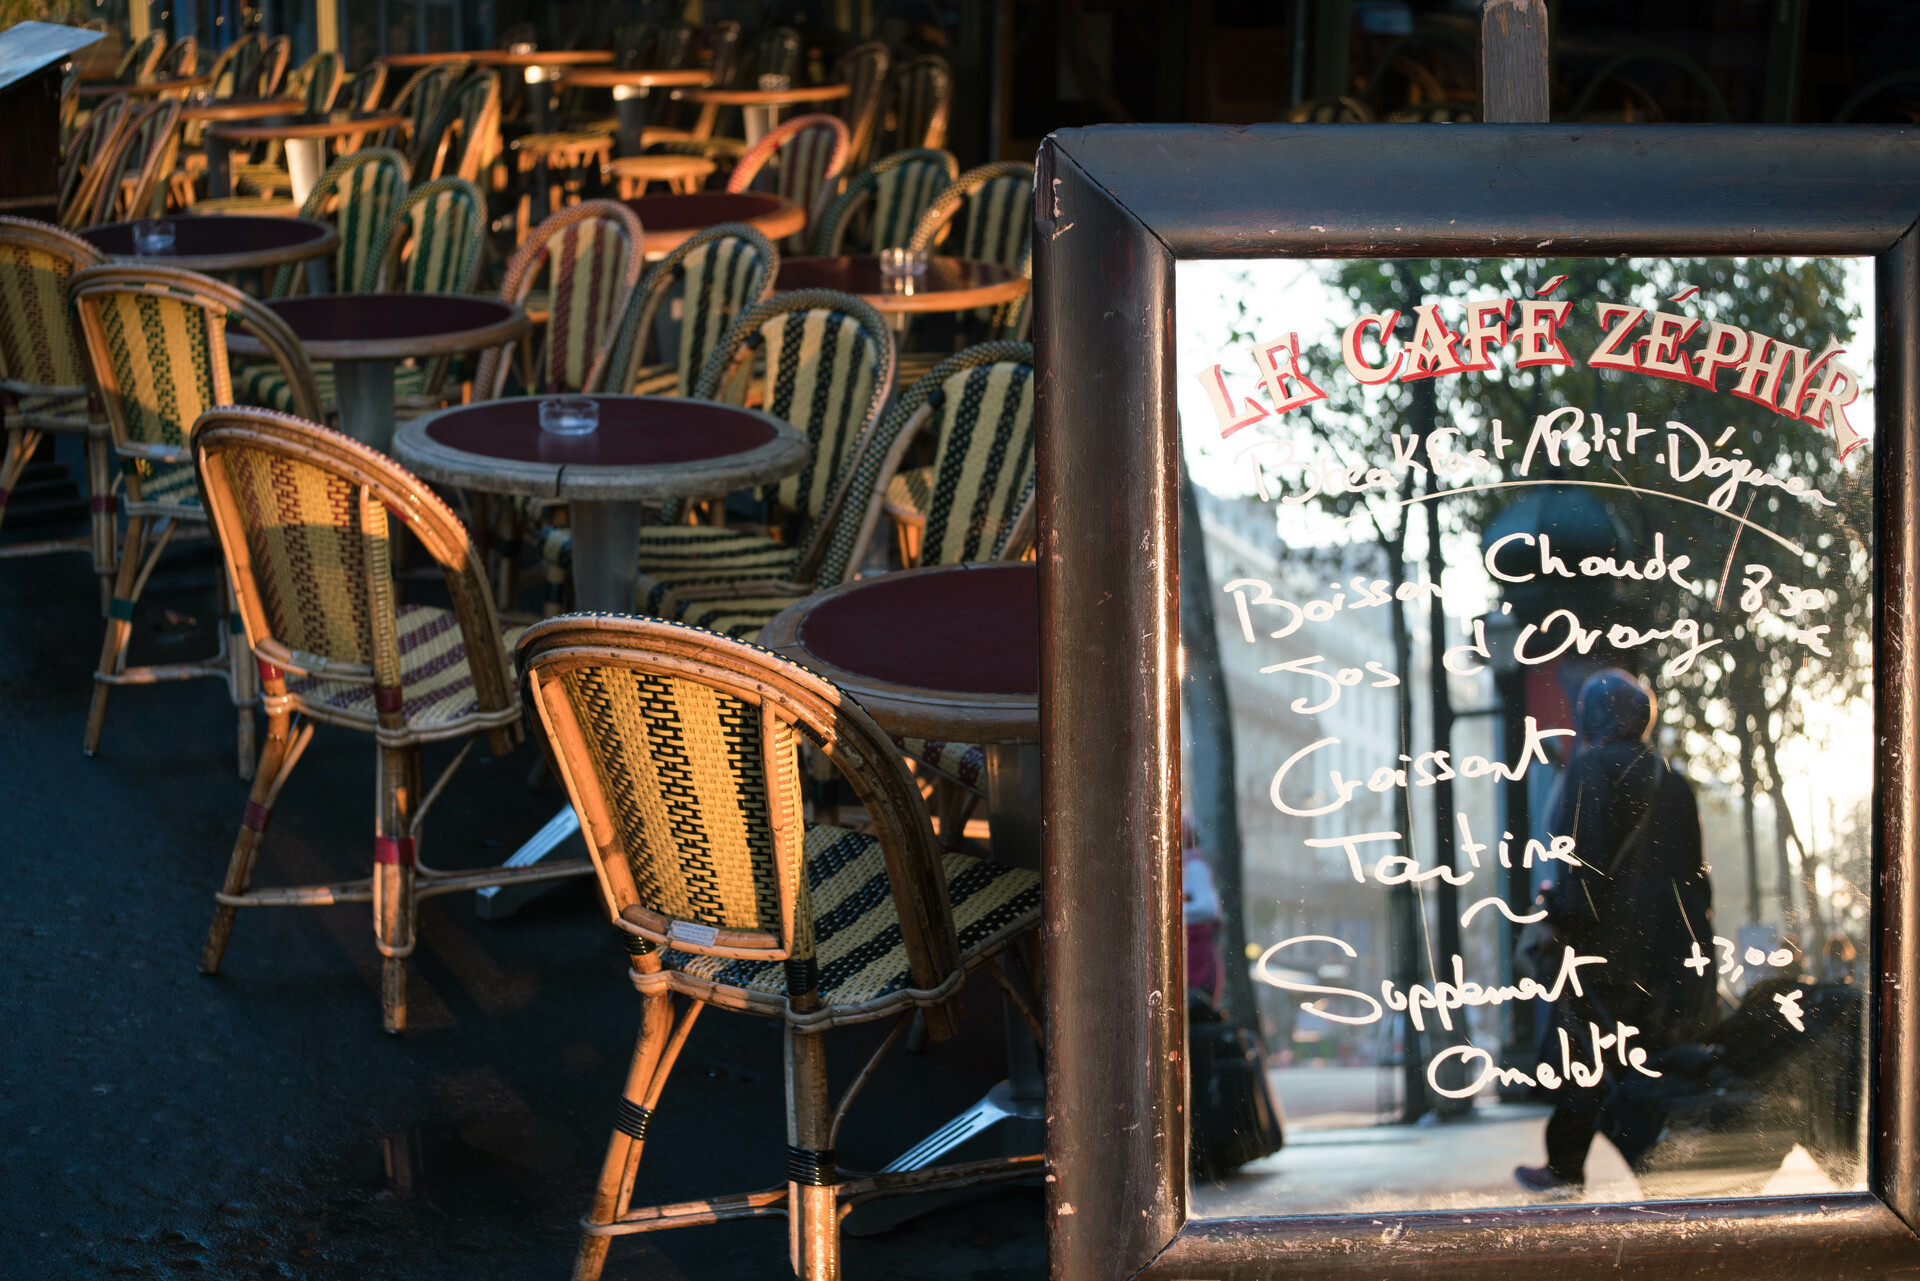 LE CAFÉ ZÉPHYR
Breakfast/Petit.Déjeuner
Boisson Chaude 8,50
Jos d'Orang €
Croissant
Tartine
~
Supplement +3,00
Omelette €